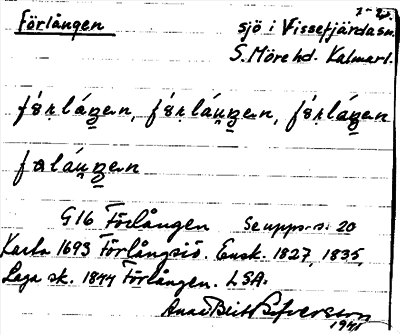 Förlången
sjö i Vissefjärda sn.
S. Möre hd. Kalmarl.
fö́rláŋen, fö́rláŋen, fö́rláŋen
faláŋen
G16 Förlången Se upps. s. 20
Karta 1693 Förlångsiö. Ensk. 1827, 1835,
Laga sk. 1844 Förlången. LSA.
Anna Britt
1941